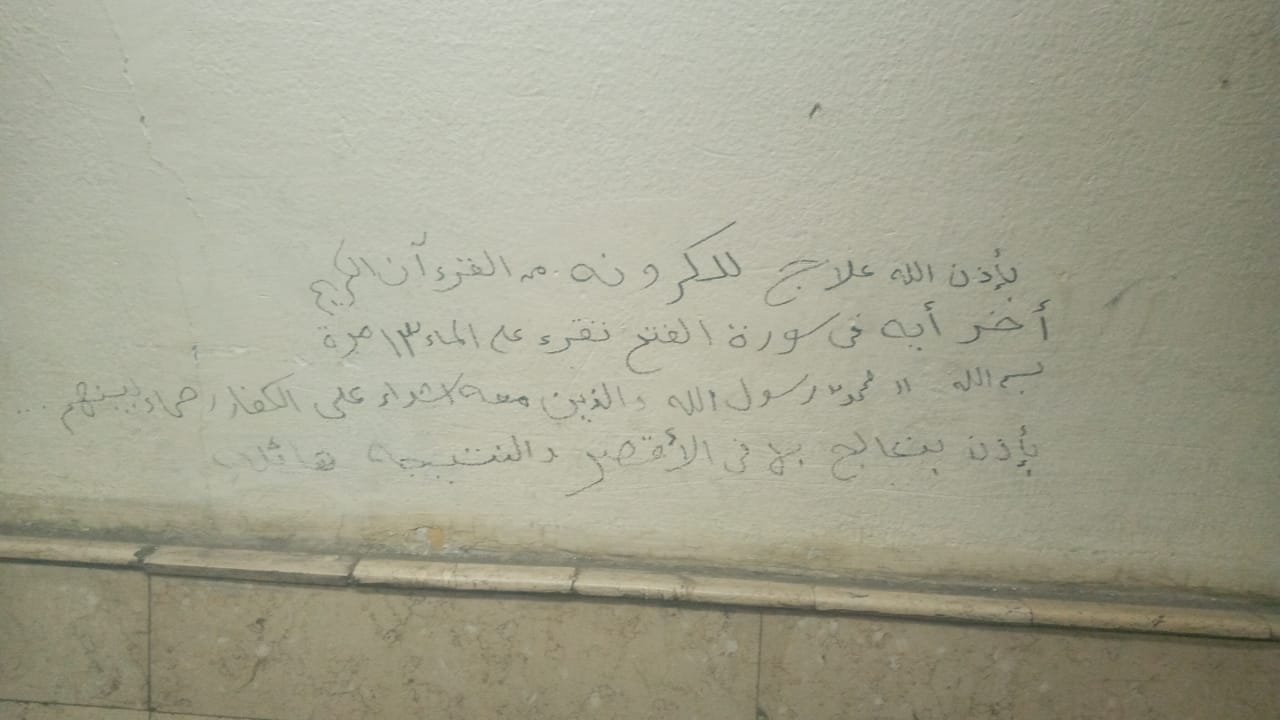 بأذن الله علاج للكرونه من القرءآن الكريم
أخر أيه فى سورة الفتح تقرء على الماء ١٣ مرة
بسم الله " محمد رسول الله والذين معه اشداء على الكفار رحماء بينهم ...
بأذن بتعالج بها فى الأقصر والنتيجه